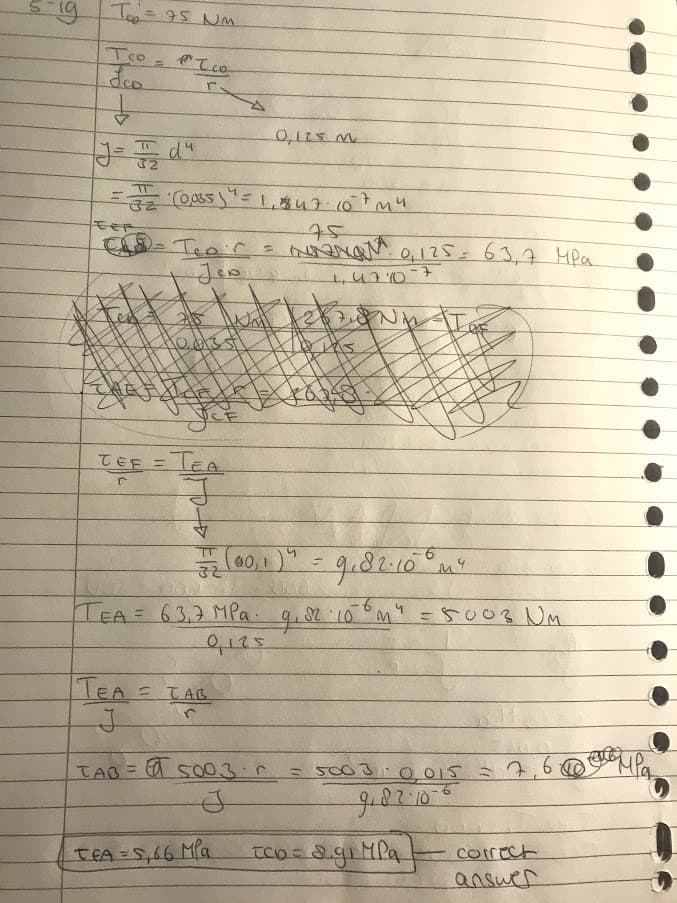 5-19 T_CD = 75 Nm
T_CD / J_CD = τ_CD / r
0,125 m
J = π/32 d⁴
= π/32 · (0,035)⁴ = 1,47·10⁻⁷ m⁴
τ_EF = T_CD · r / J_CD = 75 · 0,125 / 1,47·10⁻⁷ = 63,7 MPa
τ_EF / r = T_EA / J
π/32 (0,1)⁴ = 9,82·10⁻⁶ m⁴
T_EA = 63,7 MPa · 9,82·10⁻⁶ m⁴ / 0,125 = 5003 Nm
T_EA / J = τ_AB / r
τ_AB = 5003 · r / J = 5003 · 0,015 / 9,82·10⁻⁶ = 7,6 MPa
τ_EA = 5,66 MPa τ_CD = 8,91 MPa — correct
answer